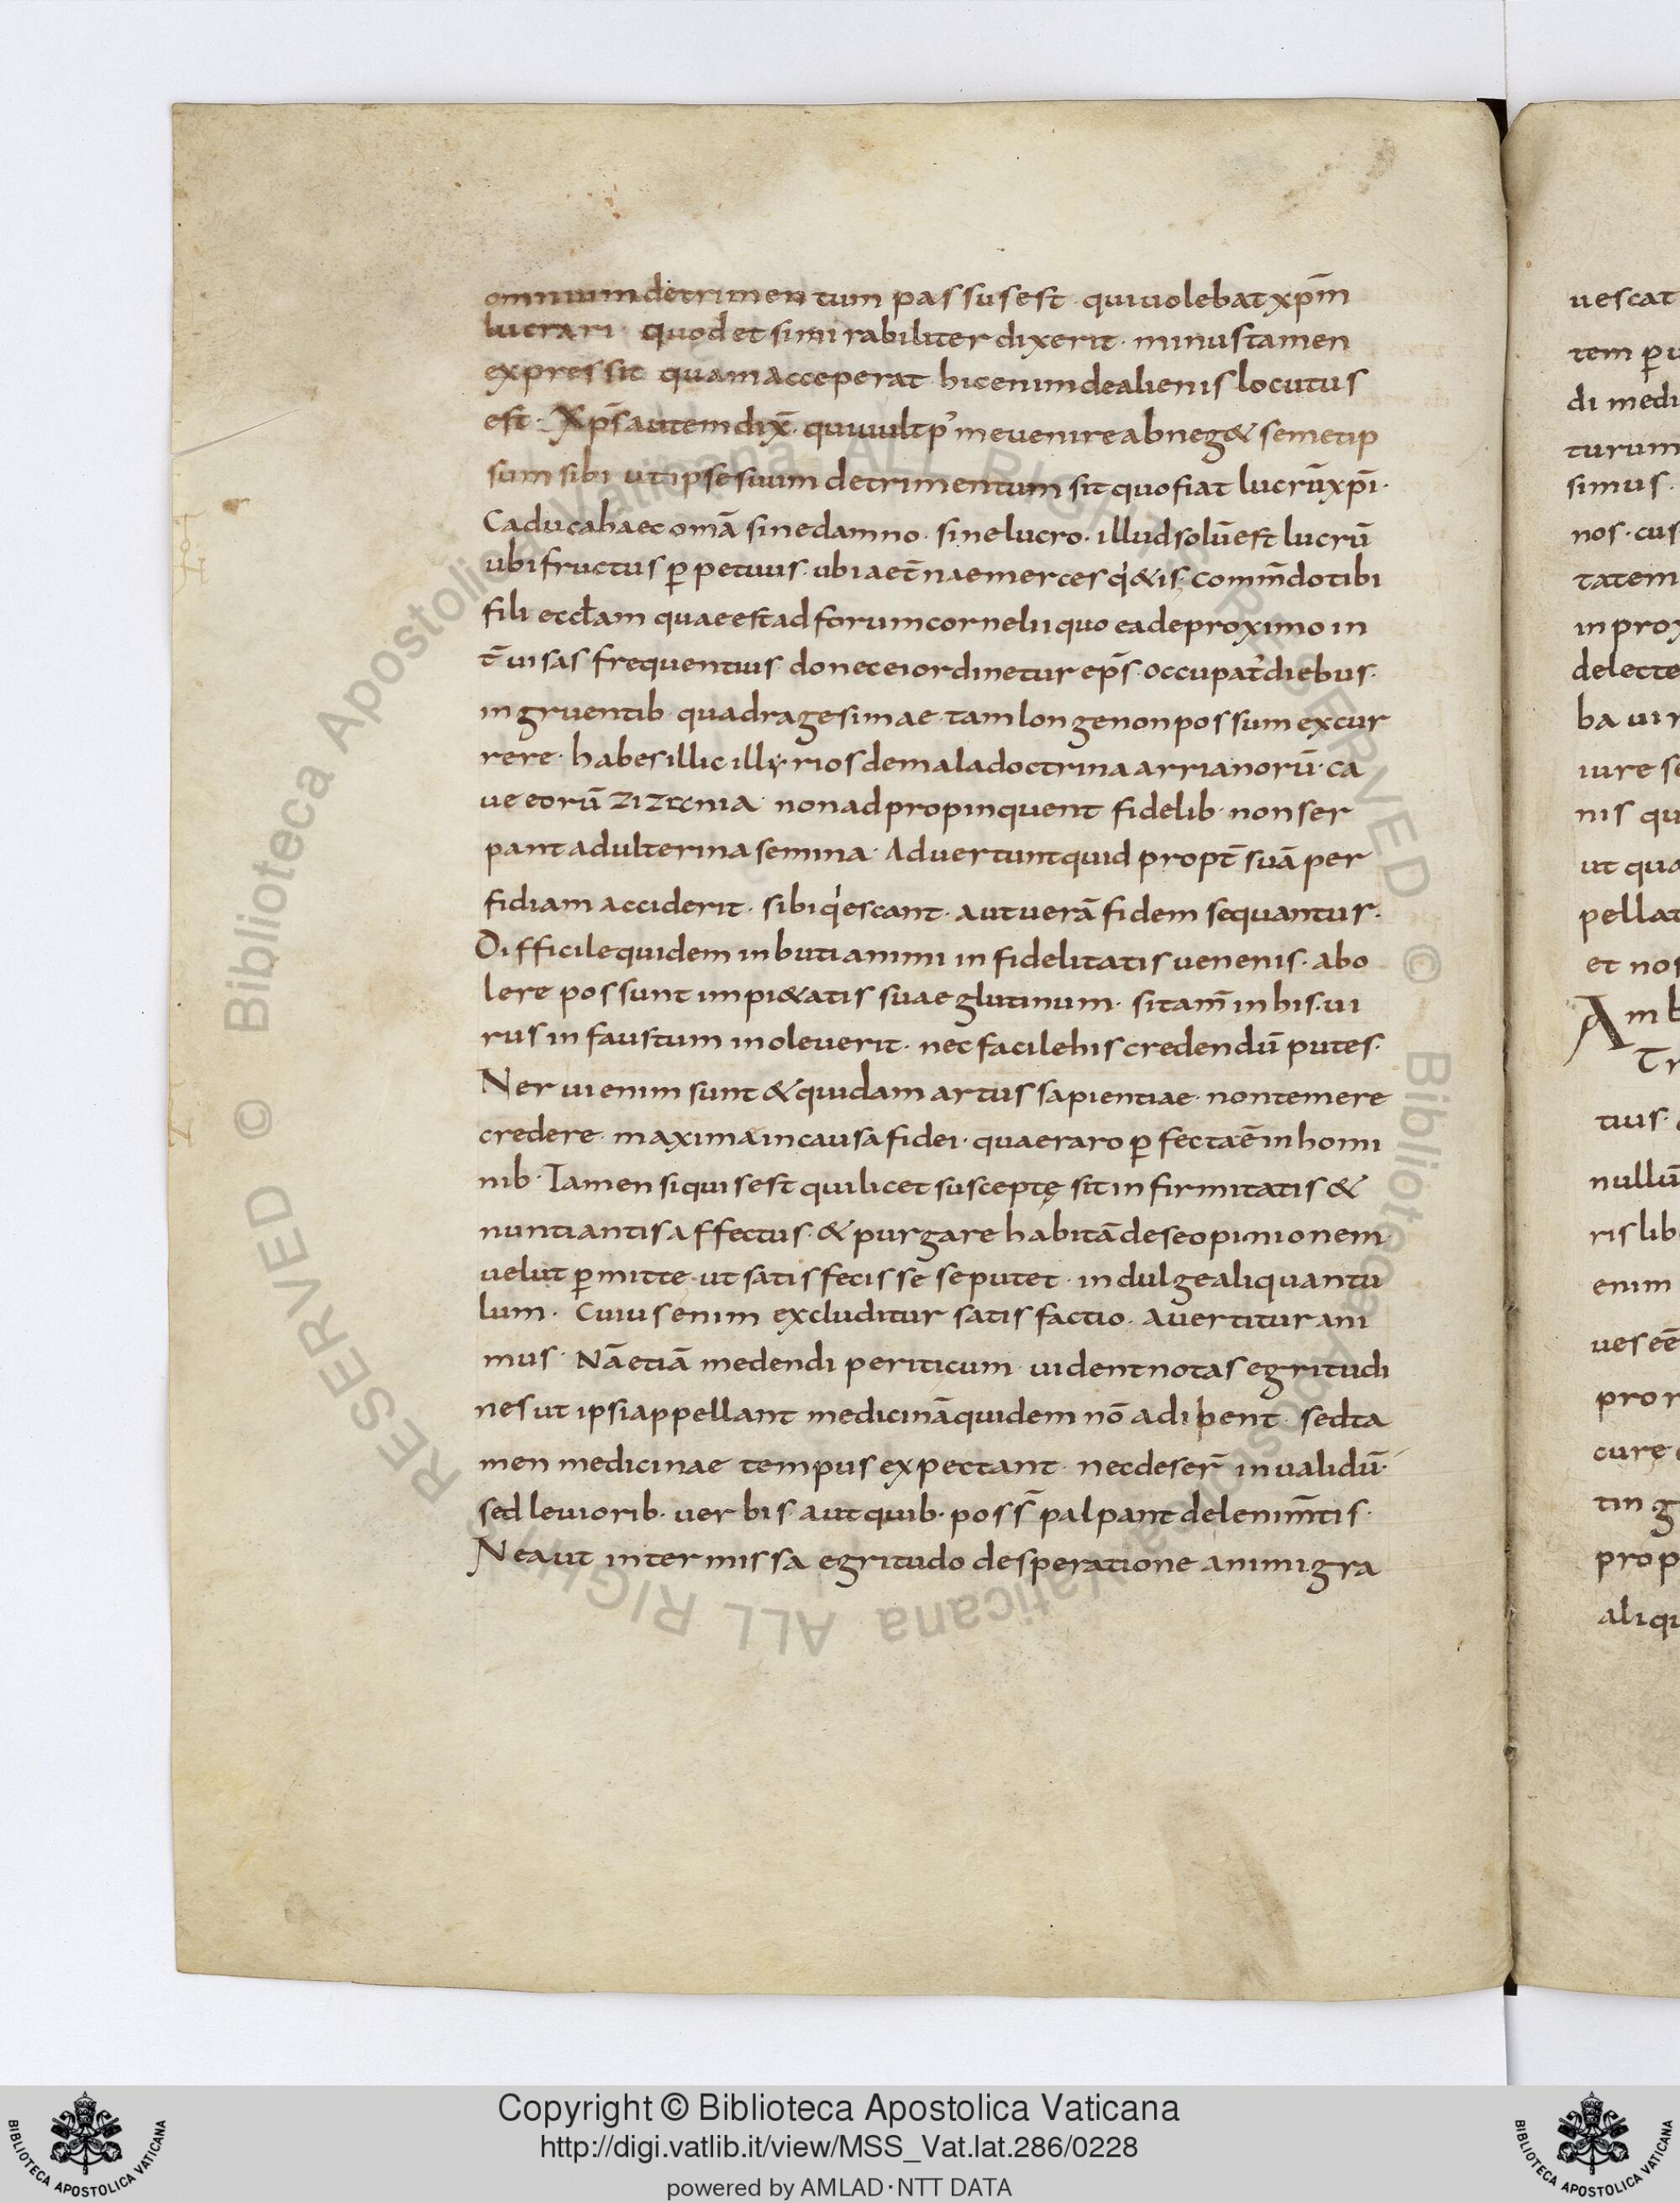 omnium detrimentum passus est · qui uolebat xp̄m
lucrari · quod et si mirabiliter dixerit · minus tamen
expressit quam acceperat · hic enim de alienis locutus
est · Xp̄s autem dix̄ · qui uult p᾽ me uenire abneg& semetip
sum sibi ut ipse suum detrimentum sit quo fiat lucrū xp̄i ·
Caduca haec omā sine damno · sine lucro · illud solū est lucrū
ubi fructus p̲petuus · ubi aet̄nae merces q'&is · Comm̄do tibi
fili eccƚam quae est ad forum cornelii quo ea de proximo in
t̄uisas frequentius donec ei ordinetur ep̄s · occupat᾽ diebus ·
ingruentib · quadragesimae · tam longe non possum excur
rere · habes illic illyrios de mala doctrina arrianorū · ca
ue eorū zizania · non adpropinquent fidelib · non ser
pant adulterina semina · Aduertunt quid propt̄ suā per
fidiam acciderit · sibi q'escant · aut uerā fidem sequantur ·
Difficile quidem inbuti animi infidelitatis uenenis · abo
lere possunt impi&atis suae glutinum · si tam̄ in his · ui
rus infaustum inoleuerit · nec facile his credendū putes ·
Nerui enim sunt & quidam artus sapientiae · non temere
credere · maxima in causa fidei · quae raro p̲fecta ē in homi
nib · Tamen si quis est qui licet susceptę sit infirmitatis &
nuntiantis affectus · & purgare habitā de se opinionem
uelut p̲mitte · ut satisfecisse se putet · indulge aliquantu
lum · Cuius enim excluditur satisfactio · auertitur ani
mus · Nā etiā medendi periti cum uident notas egritudi
nes ut ipsi appellant medicinā quidem nō adibent · sed ta
men medicinae tempus expectant · nec deser̄ inualidū ·
sed leuiorib · uerbis aut quib · poss̄ palpant delenim̄tis ·
Ne aut intermissa egritudo desperatione animi gra
uescat
tem p̲
di medi
turum
simus ·
nos · cus
tatem
in prox
delecte
ba uir
iure se
nis qu
ut qua
pellat
et nos
Amb
Tr
tius ·
nullū
ris lib
enim
ues eē
pror
curę
ting
prop
aliqu
© Biblioteca Apostolica Vaticana ALL RIGHTS RESERVED © Biblioteca Apostolica Vaticana ALL RIGHTS RESERVED
Copyright © Biblioteca Apostolica Vaticana
http://digi.vatlib.it/view/MSS_Vat.lat.286/0228
powered by AMLAD·NTT DATA
BIBLIOTECA APOSTOLICA VATICANA
BIBLIOTECA APOSTOLICA VATICANA